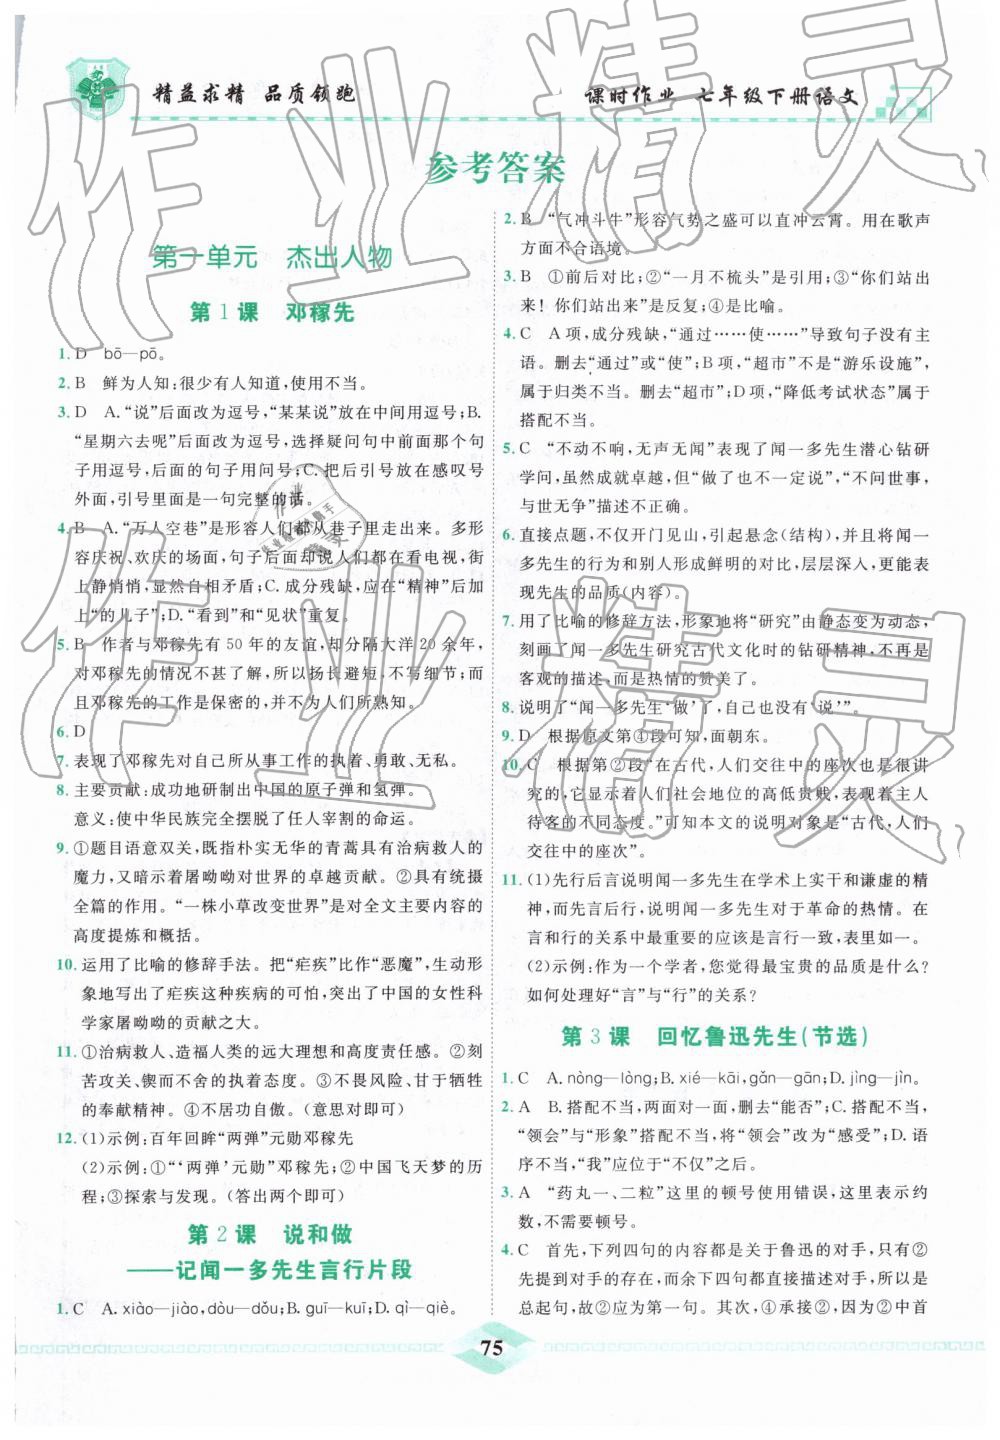 精益求精 品质领跑
课时作业 七年级下册语文
参考答案
第一单元 杰出人物
第1课 邓稼先
1. D bō—pō。
2. B 鲜为人知:很少有人知道,使用不当。
3. D A.“说”后面改为逗号,“某某说”放在中间用逗号;B.
“星期六去呢”后面改为逗号,选择疑问句中前面那个分
句子用逗号,后面的句子用问号;C.把后引号放在感叹号
外面,引号里面是一句完整的话。
4. B A.“万人空巷”是形容人们都从巷子里走出来。多形
容庆祝、欢庆的场面,句子后面却说人们都在看电视,街
上静悄悄,显然自相矛盾;C.成分残缺,应在“精神”后加
上“的儿子”;D.“看到”和“见状”重复。
5. B 作者与邓稼先有 50 年的友谊,却分隔大洋 20 余年,
对邓稼先的情况不甚了解,所以扬长避短,不写细节;而
且邓稼先的工作是保密的,并不为人们所熟知。
6. D
7. 表现了邓稼先对自己所从事工作的执着、勇敢、无私。
8. 主要贡献:成功地研制出中国的原子弹和氢弹。
意义:使中华民族完全摆脱了任人宰割的命运。
9. ①题目语意双关,既指朴实无华的青蒿具有治病救人的
魔力,又暗示着屠呦呦对世界的卓越贡献。②具有统摄
全篇的作用。“一株小草改变世界”是对全文主要内容的
高度提炼和概括。
10. 运用了比喻的修辞手法。把“疟疾”比作“恶魔”,生动形
象地写出了疟疾这种疾病的可怕,突出了中国的女性科
学家屠呦呦的贡献之大。
11. ①治病救人、造福人类的远大理想和高度责任感。②刻
苦攻关、锲而不舍的钻研精神。③不畏艰难,甘于牺牲
的奉献精神。④不居功自傲。(意思对即可)
12. (1)示例:百年回眸“两弹”元勋邓稼先
(2)示例:①“‘两弹’元勋”邓稼先;②中国飞天梦的历
程;③探索与发现。(答出两个即可)
第2课 说和做
——记闻一多先生言行片段
1. C A. xiào—jiào,dòu—dǒu;B. guī—kuī;D. qì—qiè。
2. B “气冲斗牛”形容气势之盛可以直冲云霄。用在歌声
方面不合语境。
3. B ①前后对比;②“一月不梳头”是夸张;③“你们站出
来!你们站出来”是反复;④是比喻。
4. C A 项,成分残缺,“通过……使……”导致句子没有主
语。删去“通过”或“使”;B项,“超市”不是“游乐设施”,
属于归类不当。删去“超市”;D 项,“降低考试状态”属于
搭配不当。
5. C “不动不响,无声无闻”表现了闻一多先生潜心钻研
学问,虽然成就卓越,但“做了也不一定说”,“不问世事,
与世无争”描述不正确。
6. 直接点题,不仅开门见山,引起悬念(结构),并将闻一
多先生的行为和别人形成鲜明的对比,层层深入,更能表
现先生的品质(内容)。
7. 用了比喻的修辞方法,形象地将“研究”由静态变为动态,
刻画了闻一多先生研究古代文化时的钻研精神,不再是
客观的描述,而是热情的赞美了。
8. 说明了“闻一多先生‘做’了,自己也没有‘说’”。
9. D 根据原文第④段可知,面朝东。
10. C 根据第②段“在古代,人们交往中的座次也是很讲
究的,它体现了人们社会地位的高低贵贱,表现着主人
待客的不同态度。”可知本文的说明对象是“古代,人们
交往中的座次”。
11. (1)先行后言说明闻一多先生在学术上实干和谦虚的精
神,而先言后行,说明闻一多先生对于革命的热情。在
言和行的关系中最重要的应该是言行一致,表里如一。
(2)示例:作为一个学者,您觉得最宝贵的品质是什么?
如何处理好“言”与“行”的关系?
第3课 回忆鲁迅先生(节选)
1. C A. nòng—lòng;B. xié—kāi,gǎn—gān;D. jìng—jìn。
2. A B.搭配不当,两面对一面,删去“能否”;C.搭配不当,
“领会”与“形象”搭配不当,将“领会”改为“感受”;D.语
序不当,“我”应置于“不仅”之后。
3. A “药丸一、二粒”这里的顿号使用错误,这里表示约
数,不需要顿号。
4. C 首先,下列四句的内容都是关于鲁迅的对手,只有②
先提到对手的存在,而余下四句都直接描述对手,所以是
总起句,故②应为第一句。其次,④承接②,因为②中首
75
作业精灵
作业精灵